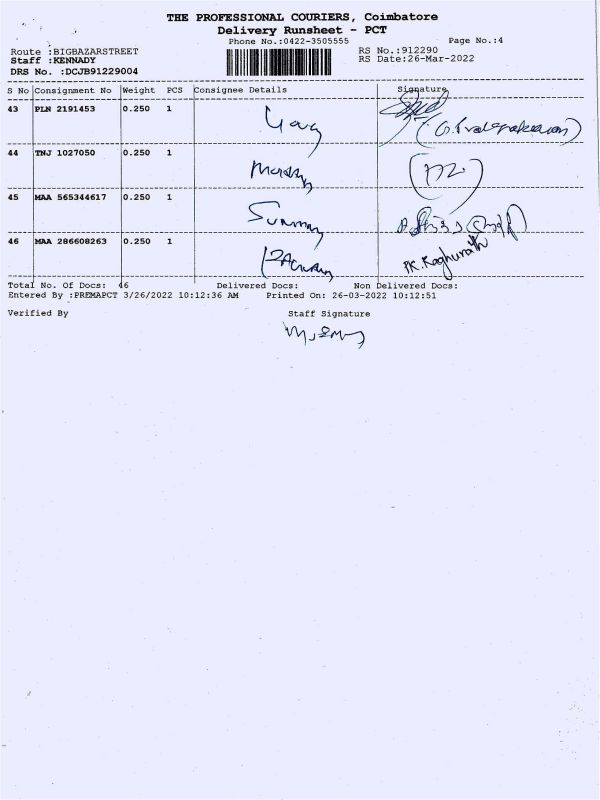 THE PROFESSIONAL COURIERS, Coimbatore
Delivery Runsheet - PCT
Phone No.:0422-3505555
Page No.:4
Route :BIGBAZARSTREET
RS No.:912290
Staff :KENNADY
RS Date:26-Mar-2022
DRS No. :DCJB91229004
S No Consignment No Weight PCS Consignee Details Signature
43 PLN 2191453 0.250 1
44 TNJ 1027050 0.250 1
45 MAA 565344617 0.250 1
46 MAA 286608263 0.250 1
PK.Raghunath
Total No. Of Docs: 46 Delivered Docs: Non Delivered Docs:
Entered By :PREMAPCT 3/26/2022 10:12:36 AM Printed On: 26-03-2022 10:12:51
Verified By Staff Signature